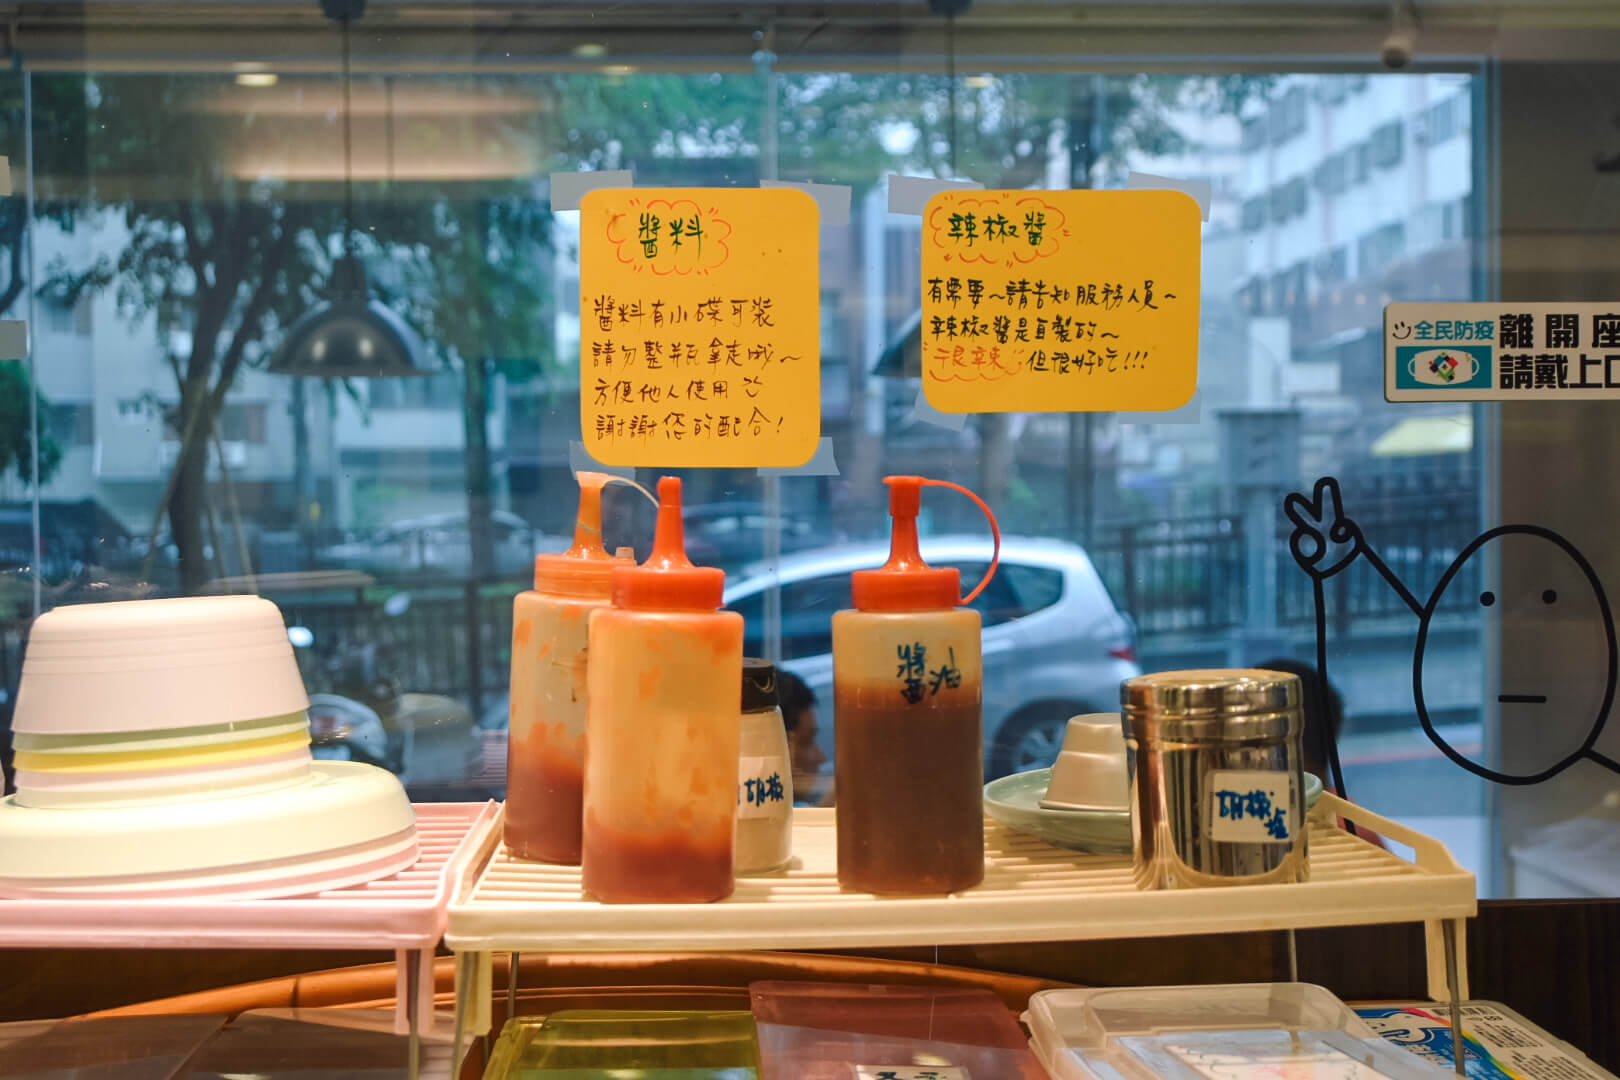 醬料
醬料有小碟可裝
請勿整瓶拿走哦~
方便他人使用
謝謝您的配合!
辣椒醬
有需要~請告知服務人員~
辣椒醬是自製的~
"很辣"但很好吃!!!
全民防疫
離開座
請戴上口
醬油
胡椒
胡椒塩